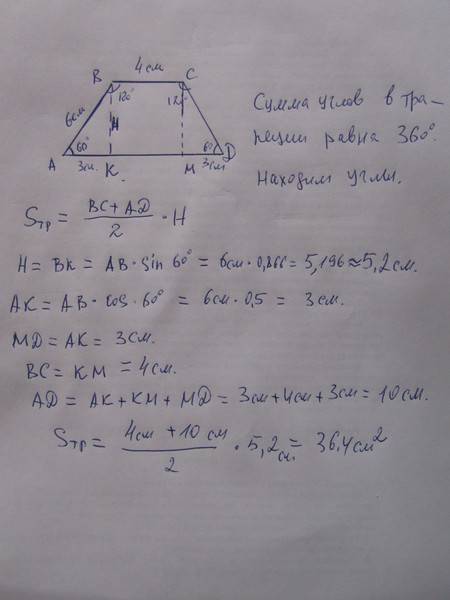 4см
B C
120° 120°
6см H
60° 60°
A 3см. K. M 3см D
Сумма углов в тра-
пеции равна 360°.
Находим углы.
Sтр = BC+AD / 2 · H
H = BK = AB · sin 60° = 6см · 0,866 = 5,196 ≈ 5,2см.
AK = AB · cos · 60° = 6см · 0,5 = 3см.
MD = AK = 3см.
BC = KM = 4см.
AD = AK + KM + MD = 3см + 4см + 3см = 10см.
Sтр = 4см + 10 см / 2 · 5,2см. = 36.4см²